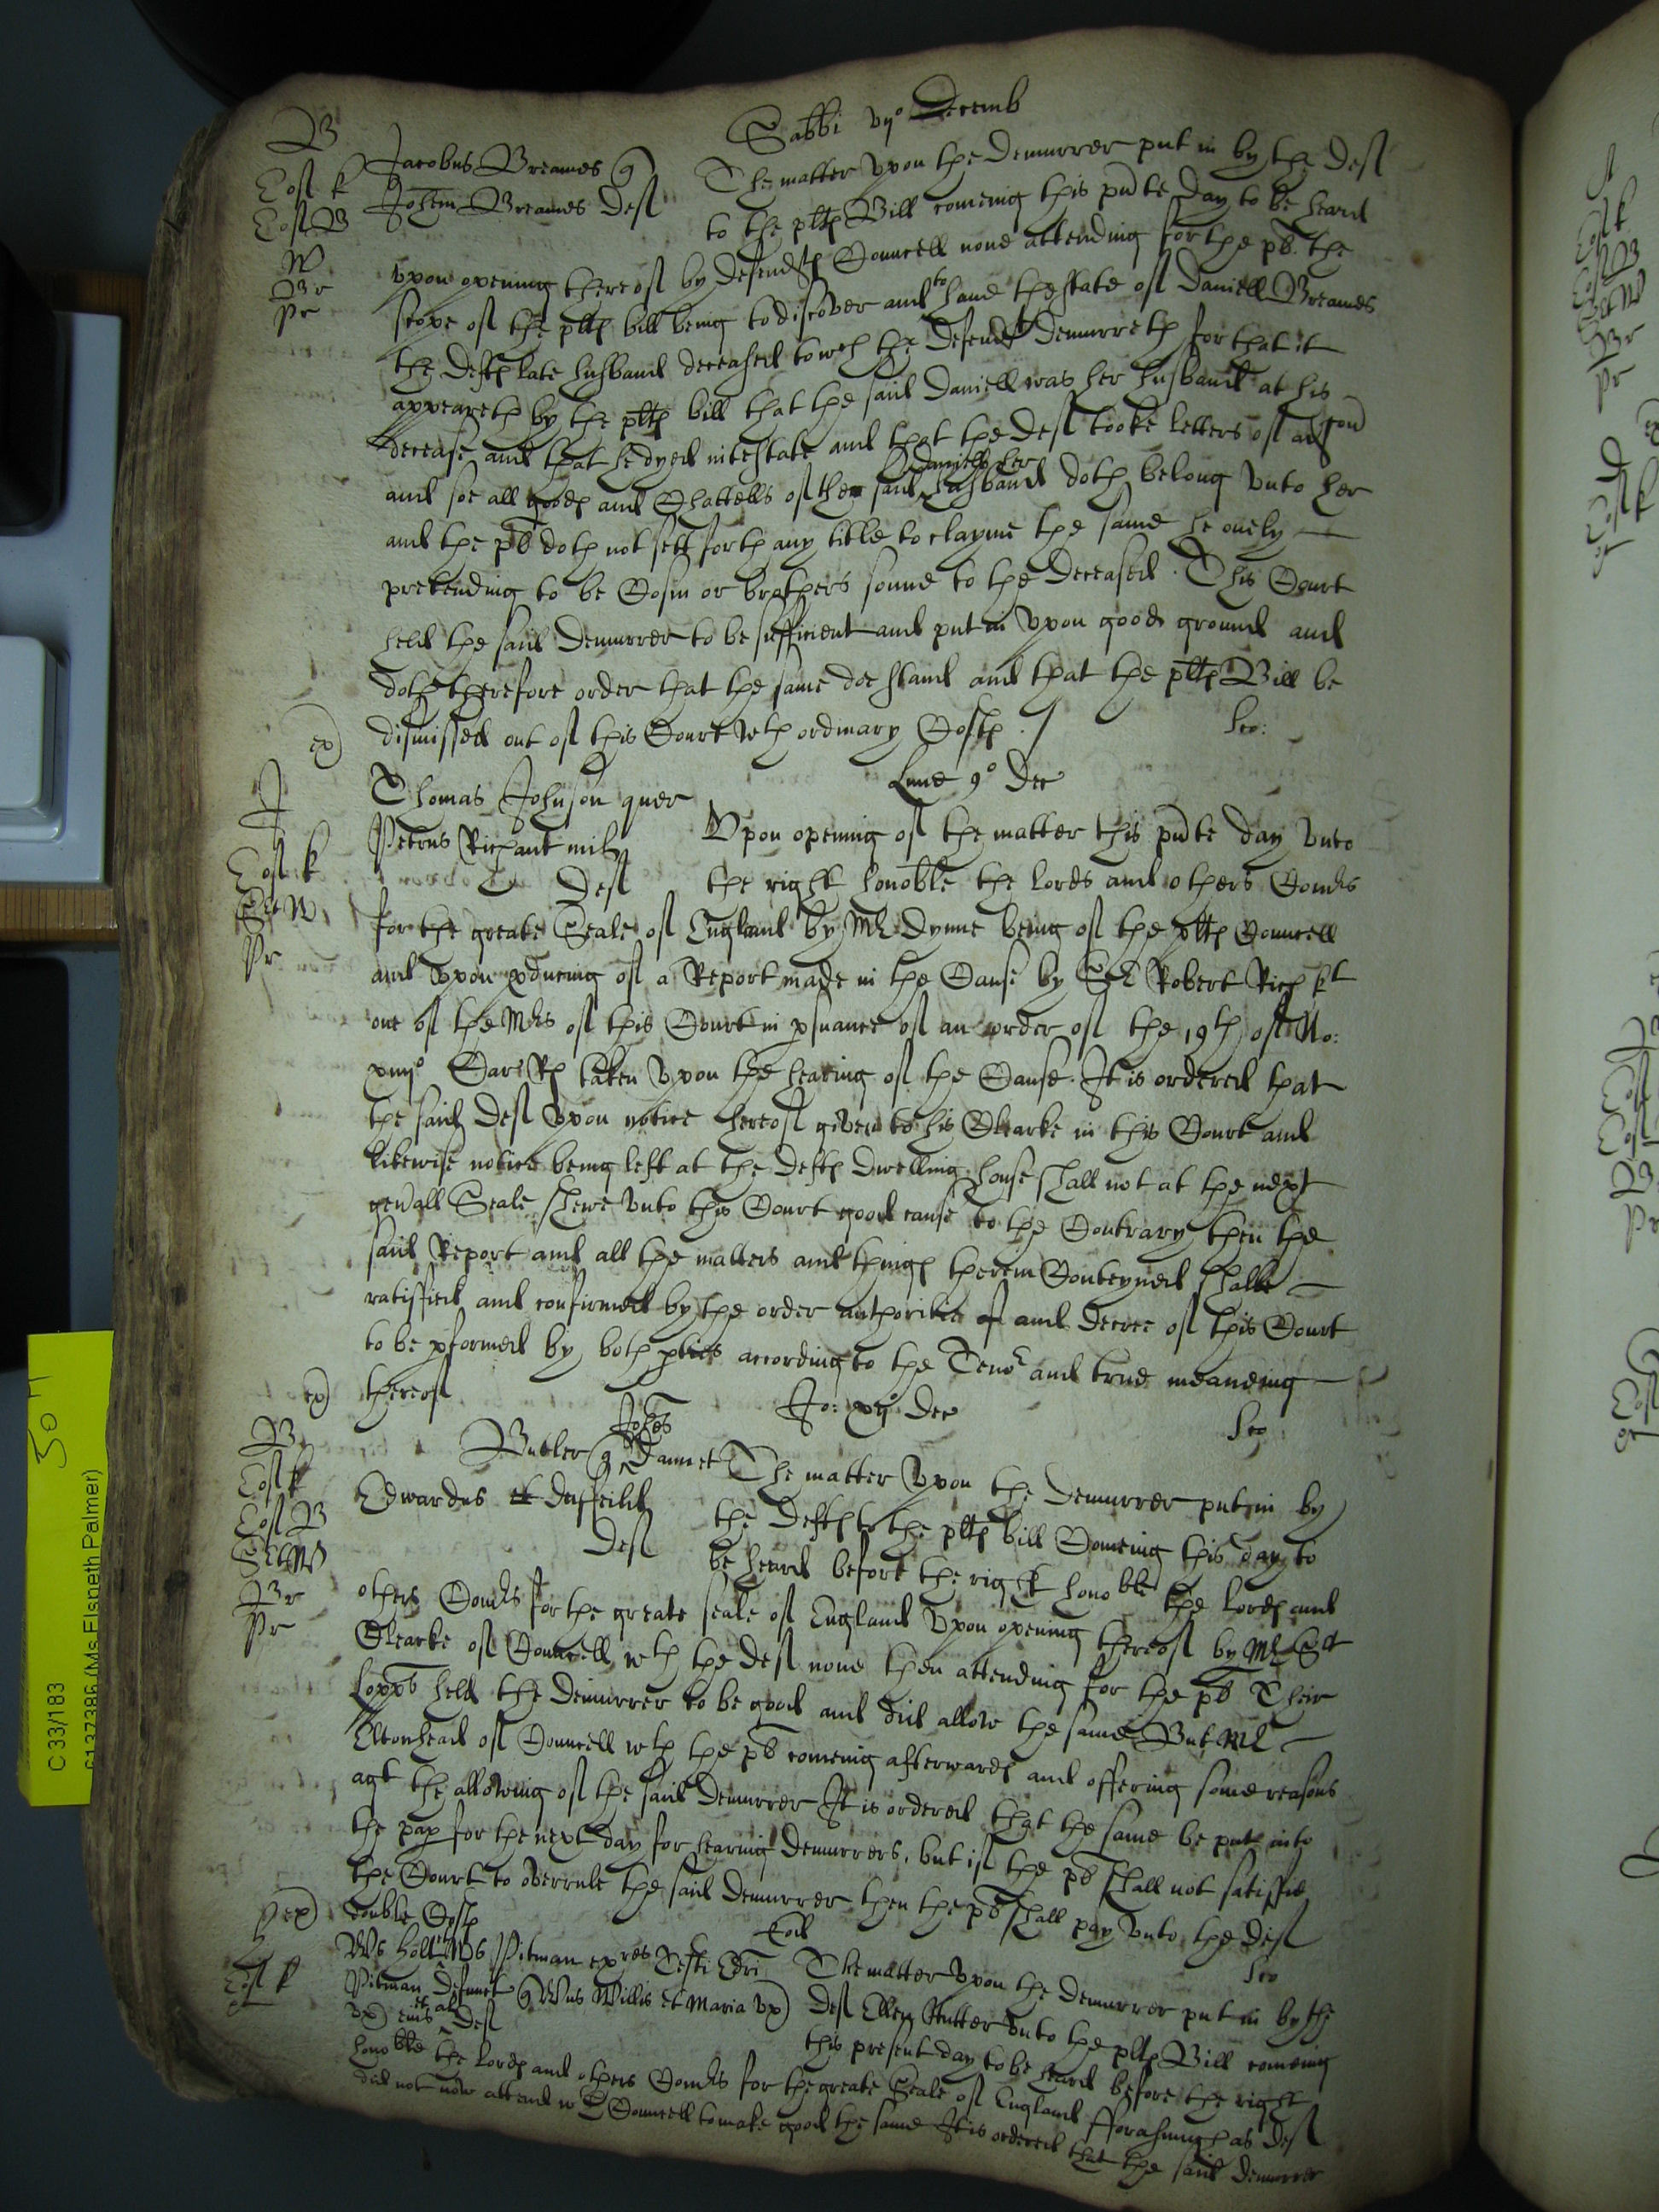 Sabbi vijo Decemb
Jacobus Breames q The matter vpon the demurrer put in by the def
Johem Breames def to the pltes Bill comeing this pnte day to be heard
vpon opening thereof by defendts Councell none attending for the pl. the
scope of the pltes bill being to discover and to have the state of Daniell Breames
the defts late husband deceased to wch the defendt demurreth for that it
appeareth by the pltes bill that the said Daniell was her husband at his
decease and that he dyed intestate and that the def tooke letters of
and soe all goods and Chattells of the said Daniell her husband doth belong vnto her
and the pl doth not sett forth any title to clayme the same he onely
pretending to be Cosin or brothers sonne to the deceased. This Court
held the said demurrer to be sufficient and put in vpon good ground and
doth therefore order that the same doe stand and that the pltes Bill be
dismissed out of this Court wth ordinary Costes./
ex)
Lune 9o Dec
Thomas Johnson quer
Petrus Richaut mil Vpon opening of the matter this pnte day vnto
def the right honoble the lords and others Comrs
for the greate Seale of England by Mr Dynne being of the pltes Councell
and vpon pducing of a Report made in the Cause by Sr Robert Rich kt
one of the Mrs of this Court in psuance of an order of the 19th of No:
Car Rs taken vpon the hearing of the Cause. It is ordered that
the said def vpon notice hereof given to his Clearke in this Court and
likewise notice being left at the defts dwelling house shall not at the next
genall Seale shewe vnto this Court good cause to the Contrary then the
said Report and all the matters and things therein Conteyned shalbe
ratified and confirmed by the order authoritie of and decree of this Court
to be pformed by both pties according to the Tenor and true meaneing
thereof
ex)
Jo: xijo Dec
Butler q Johes Dannet The matter vpon the demurrer put in by
Edwardus et the defts to the pltes bill Comeing this day to
def be heard before the right honoble the lords and
others Comrs for the greate seale of England vpon opening thereof by Mr
Clearke of Councell wth the def none then attending for the pl Their
lopps held the demurrer to be good and did allow the same But Mr
Eltonhead of Councell wth the pl comeing afterwards and offering some reasons
agt the allowing of the said demurrer It is ordered that the same be put into
the pap for the next day for hearing demurrers, but if the pl shall not satisfie
the Court to overrule the said demurrer then the pl shall pay vnto the def
double Costs
ex)
Eod
Ws Holt et Ws Pitman exres Testi Edri The matter vpon the demurrer put in by the
Pitman defunct q Wus Willis et Maria vx) def Ellen Rutter vnto the pltes Bill comeing
vx) eius et al def this present day to be heard before the right
honoble the lords and others Comrs for the greate Seale of England fforasmuch as def
did not now attend wth Councell to make good the same It is ordered that the said demurrer
C 33/183
(Ms Elsneth Palmer)